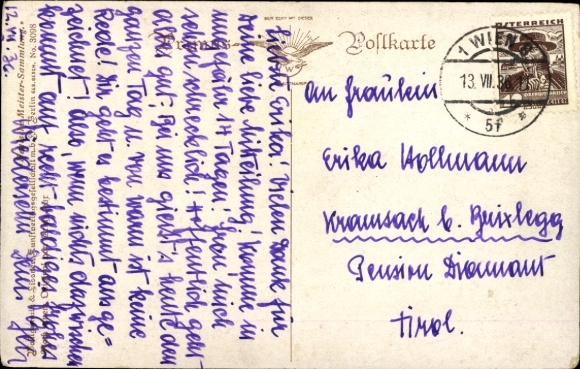 Primus-Postkarte
NUR ECHT MIT DIESER
ÖSTERREICH
1 WIEN
13. VII. 36
* 5f *
An Fräulein
Erika Hollmann
Kramsach b. Brixlegg
Pension Diamant
Tirol.
12. VII. 36.
Liebste Erika! Vielen Dank für
Deine liebe Mitteilung! Komme in
ungefähr 14 Tagen, freu mich
schon
aus gut; bei uns giesst's heute den
ganzen Tag u. von warm ist keine
Rede! Dir geht es bestimmt ausge-
zeichnet! Also, wenn nichts dazwischen
kommt auf recht baldiges
Meister-Sammlung"
No. 3098
Berlin